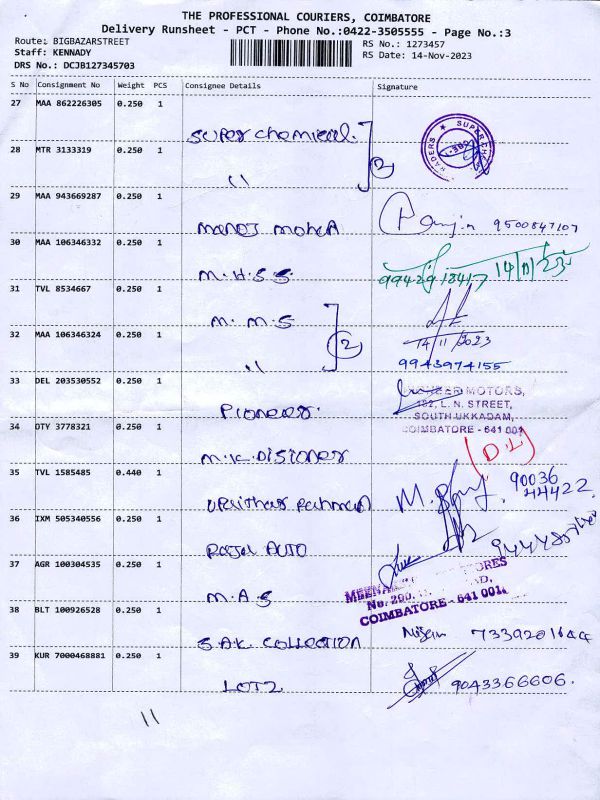 THE PROFESSIONAL COURIERS, COIMBATORE
Delivery Runsheet - PCT - Phone No.:0422-3505555 - Page No.:3
Route: BIGBAZARSTREET
RS No.: 1273457
Staff: KENNADY
RS Date: 14-Nov-2023
DRS No.: DCJB127345703
S No Consignment No Weight PCS Consignee Details Signature
27 MAA 862226305 0.250 1
Super chemical. 2
SUPER
28 MTR 3133319 0.250 1
"
29 MAA 943669287 0.250 1
9500847107
30 MAA 106346332 0.250 1
M.H.S.S
9942918417 14/11/23
31 TVL 8534667 0.250 1
M.M.S 2
14/11/2023
32 MAA 106346324 0.250 1
"
9943974155
33 DEL 203530552 0.250 1
Pioneer.
MOTORS,
L. N. STREET,
SOUTH UKKADAM,
COIMBATORE - 641 001
34 OTY 3778321 0.250 1
(D.L)
35 TVL 1585485 0.440 1
90036
44422
36 IXM 505340556 0.250 1
AUTO
37 AGR 100304535 0.250 1
M.A.S
COIMBATORE - 641 001.
38 BLT 100926528 0.250 1
S.A.K. COLLECTION
39 KUR 7000468881 0.250 1
LOTZ
9043366606.
11